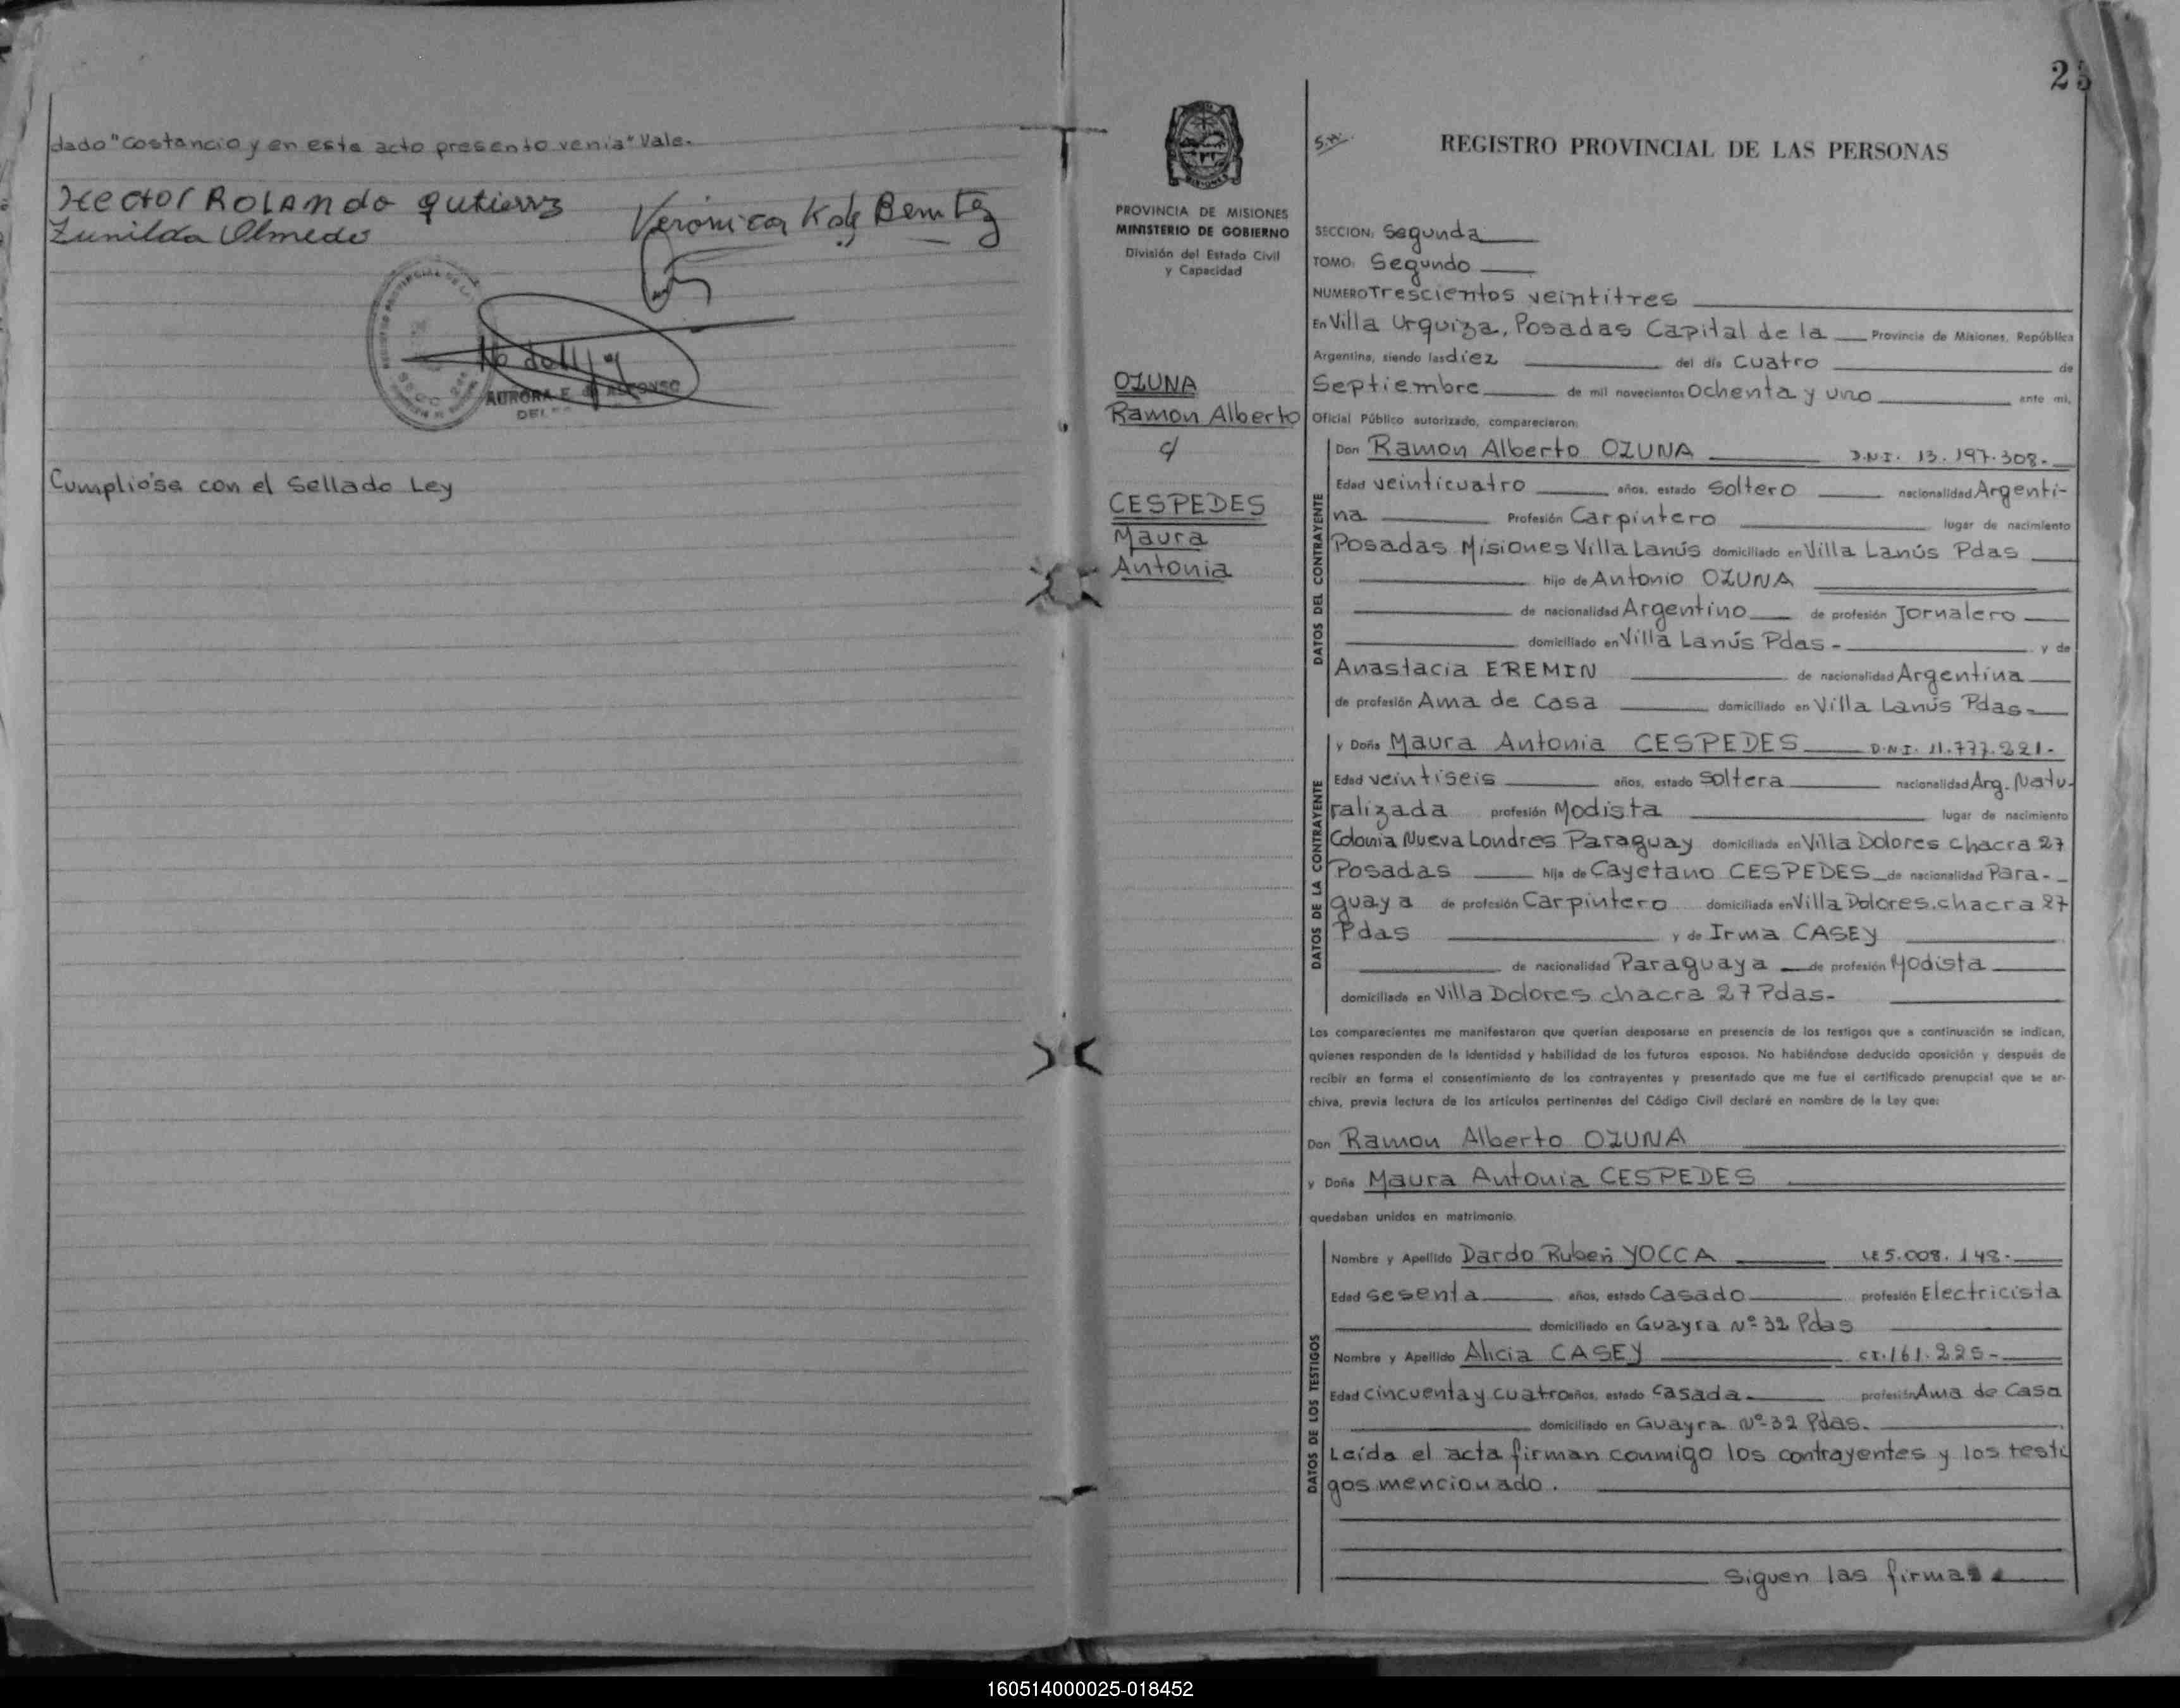 dado "Costancio y en este acto presento venia" Vale.
Hector Rolando Gutierrz
Zunilda Olmedo
Veronica K de Benitez
AURORA E. de ALFONSO
Cumpliose con el Sellado Ley
PROVINCIA DE MISIONES
MINISTERIO DE GOBIERNO
División del Estado Civil
y Capacidad
OZUNA
Ramon Alberto
c/
CESPEDES
Maura
Antonia
25
REGISTRO PROVINCIAL DE LAS PERSONAS
SECCION: Segunda
TOMO: Segundo
NUMERO Trescientos veintitres
En Villa Urquiza, Posadas Capital de la Provincia de Misiones, República
Argentina, siendo las diez del día Cuatro de
Septiembre de mil novecientos Ochenta y uno ante mi,
Oficial Público autorizado, comparecieron:
DATOS DEL CONTRAYENTE
Don Ramon Alberto OZUNA D.N.I. 13.197.308.-
Edad veinticuatro años, estado Soltero nacionalidad Argenti-
na Profesión Carpintero lugar de nacimiento
Posadas Misiones Villa Lanús domiciliado en Villa Lanús Pdas
hijo de Antonio OZUNA
de nacionalidad Argentino de profesión Jornalero
domiciliado en Villa Lanús Pdas - y de
Anastacia EREMIN de nacionalidad Argentina
de profesión Ama de Casa domiciliado en Villa Lanús Pdas-
DATOS DE LA CONTRAYENTE
y Doña Maura Antonia CESPEDES D.N.I. 11.777.221-
Edad veintiseis años, estado Soltera nacionalidad Arg. Natu-
ralizada profesión Modista lugar de nacimiento
Colonia Nueva Londres Paraguay domiciliada en Villa Dolores chacra 27
Posadas hija de Cayetano CESPEDES de nacionalidad Para-
guaya de profesión Carpintero domiciliada en Villa Dolores, chacra 27
Pdas y de Irma CASEY
de nacionalidad Paraguaya de profesión Modista
domiciliada en Villa Dolores chacra 27 Pdas-
Los comparecientes me manifestaron que querían desposarse en presencia de los testigos que a continuación se indican,
quienes responden de la identidad y habilidad de los futuros esposos. No habiéndose deducido oposición y después de
recibir en forma el consentimiento de los contrayentes y presentado que me fue el certificado prenupcial que se ar-
chiva, previa lectura de los artículos pertinentes del Código Civil declaré en nombre de la Ley que:
Don Ramon Alberto OZUNA
y Doña Maura Antonia CESPEDES
quedaban unidos en matrimonio.
DATOS DE LOS TESTIGOS
Nombre y Apellido Dardo Ruben YOCCA LE 5.008.148-
Edad Sesenta años, estado Casado profesión Electricista
domiciliado en Guayra Nº 32 Pdas
Nombre y Apellido Alicia CASEY CI. 161.225-
Edad cincuenta y cuatro años, estado Casada profesión Ama de Casa
domiciliado en Guayra Nº 32 Pdas.
Leída el acta firman conmigo los contrayentes y los testi
gos mencionado.
Siguen las firmas
160514000025-018452